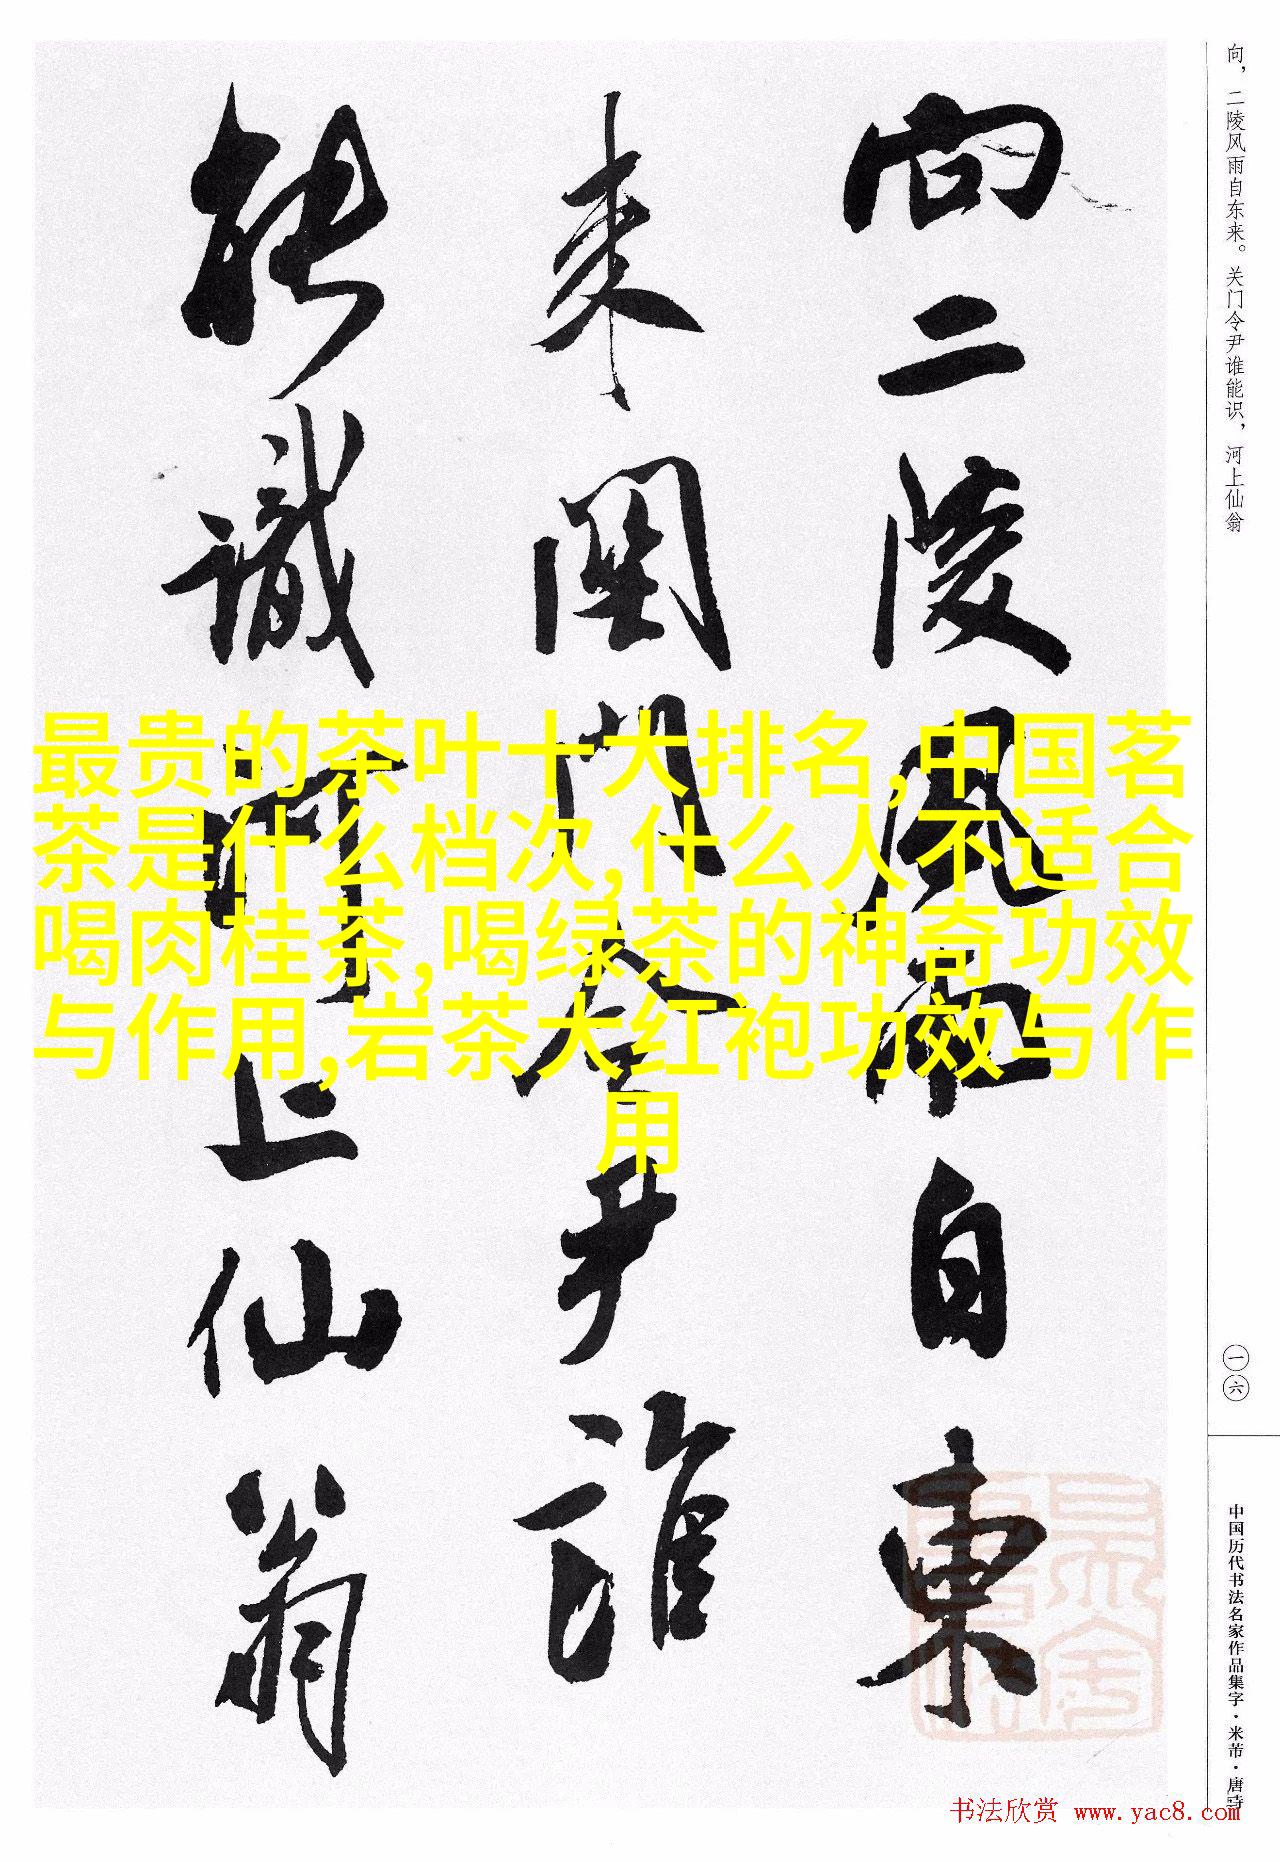 向，二陵风雨自东来。关门令尹谁能识，河上仙翁
向二陵风雨自東
来關門令尹誰
能識河上仙翁
最贵的茶叶十大排名,中国茗
茶是什么档次,什么人不适合
喝肉桂茶,喝绿茶的神奇功效
与作用,岩茶大红袍功效与作
用
一六
中国历代书法名家作品集字·米芾·唐诗
书法欣赏 www.yac8.com